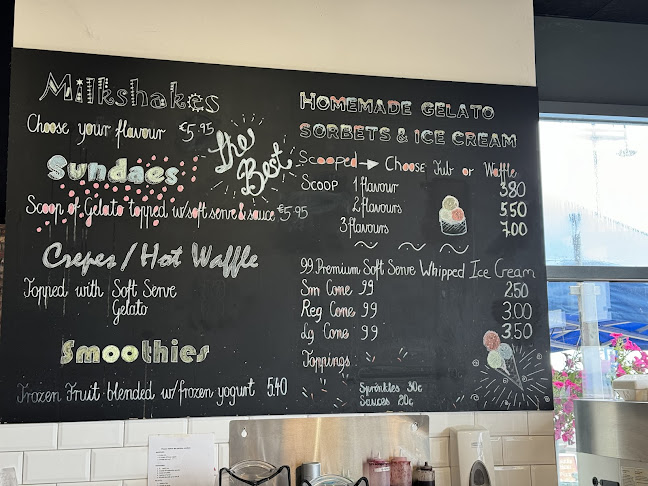 Milkshakes
Choose your flavour €5.95
The Best
Sundaes
Scoop of Gelato topped w/soft serve & sauce €5.95
Crepes / Hot Waffle
Topped with Soft Serve
Gelato
Smoothies
Frozen Fruit blended w/frozen yogurt 5.40
HOMEMADE GELATO
SORBETS & ICE CREAM
Scooped → Choose Tub or Waffle
Scoop 1 flavour 3.80
2 flavours 5.50
3 flavours 7.00
99 Premium Soft Serve Whipped Ice Cream
Sm Cone 99 2.50
Reg Cone 99 3.00
Lg Cone 99 3.50
Toppings
Sprinkles 30c
Sauces 20c